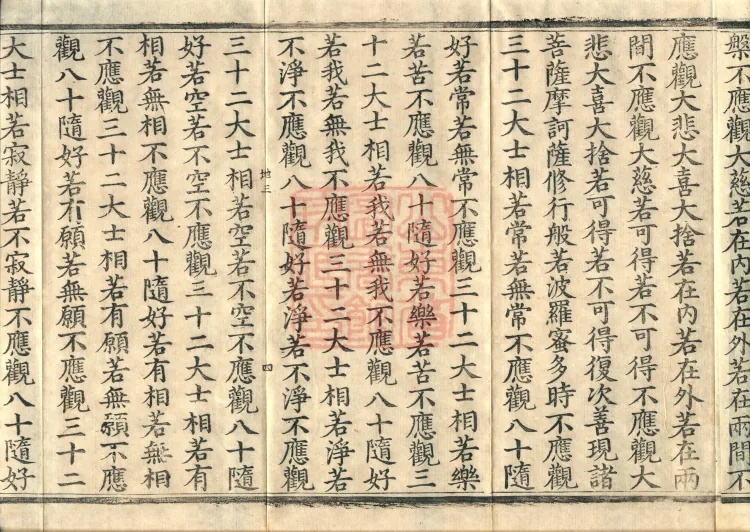 槃不應觀大慈若在內若在外若在兩間不
應觀大悲大喜大捨若在內若在外若在兩
間不應觀大慈若可得若不可得不應觀大
悲大喜大捨若可得若不可得復次善現諸
菩薩摩訶薩修行般若波羅蜜多時不應觀
三十二大士相若常若無常不應觀八十隨
好若常若無常不應觀三十二大士相若樂
若苦不應觀八十隨好若樂若苦不應觀三
十二大士相若我若無我不應觀八十隨好
若我若無我不應觀三十二大士相若淨若
不淨不應觀八十隨好若淨若不淨不應觀
地三 四
三十二大士相若空若不空不應觀八十隨
好若空若不空不應觀三十二大士相若有
相若無相不應觀八十隨好若有相若無相
不應觀三十二大士相若有願若無願不應
觀八十隨好若有願若無願不應觀三十二
大士相若寂靜若不寂靜不應觀八十隨好